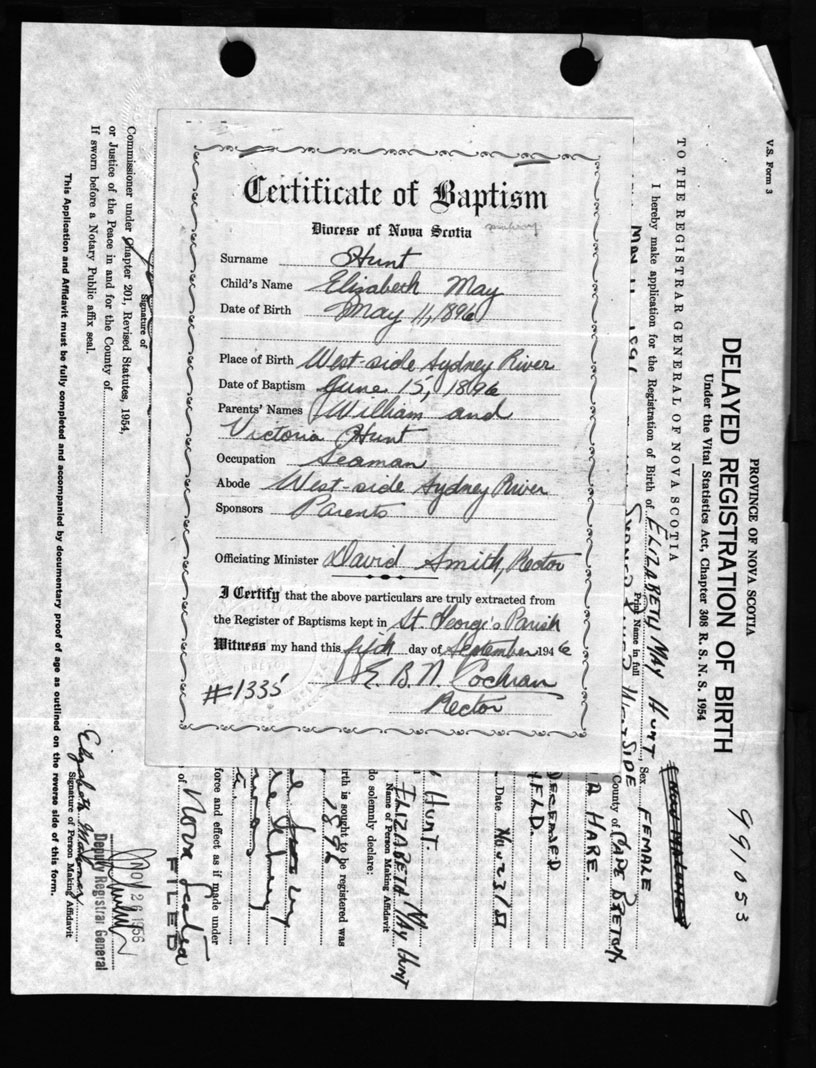 Certificate of Baptism
Diocese of Nova Scotia
Surname Hunt
Child's Name Elizabeth May
Date of Birth May 11, 1896
Place of Birth West-side Sydney River
Date of Baptism June 15, 1896
Parents' Names William and
Victoria Hunt
Occupation Seaman
Abode West-side Sydney River
Sponsors Parents
Officiating Minister David Smith, Rector
I Certify that the above particulars are truly extracted from
the Register of Baptisms kept in St. George's Parish
Witness my hand this fifth day of September 1946
E. B. N. Cochran
Rector
#1335
V.S. Form 3
PROVINCE OF NOVA SCOTIA
991053
DELAYED REGISTRATION OF BIRTH
Under the Vital Statistics Act, Chapter 308 R. S. N. S. 1954
TO THE REGISTRAR GENERAL OF NOVA SCOTIA
I hereby make application for the Registration of Birth of ELIZABETH MAY HUNT, Sex FEMALE
Print Name in full
MAY 11 1896 SYDNEY RIVER WEST SIDE County of CAPE BRETON
A HARE.
DECEASED
IELD.
Date Nov 23/55
HUNT.
ELIZABETH MAY HUNT
Name of Person Making Affidavit
do solemnly declare:
irth is sought to be registered was
1896
force and effect as if made under
of Nova Scotia
FILED
NOV 26 1956
Deputy Registrar General
Signature of
Commissioner under Chapter 201, Revised Statutes, 1954,
or Justice of the Peace in and for the County of
If sworn before a Notary Public affix seal.
Elizabeth Mahoney
Signature of Person Making Affidavit
This Application and Affidavit must be fully completed and accompanied by documentary proof of age as outlined on the reverse side of this form.